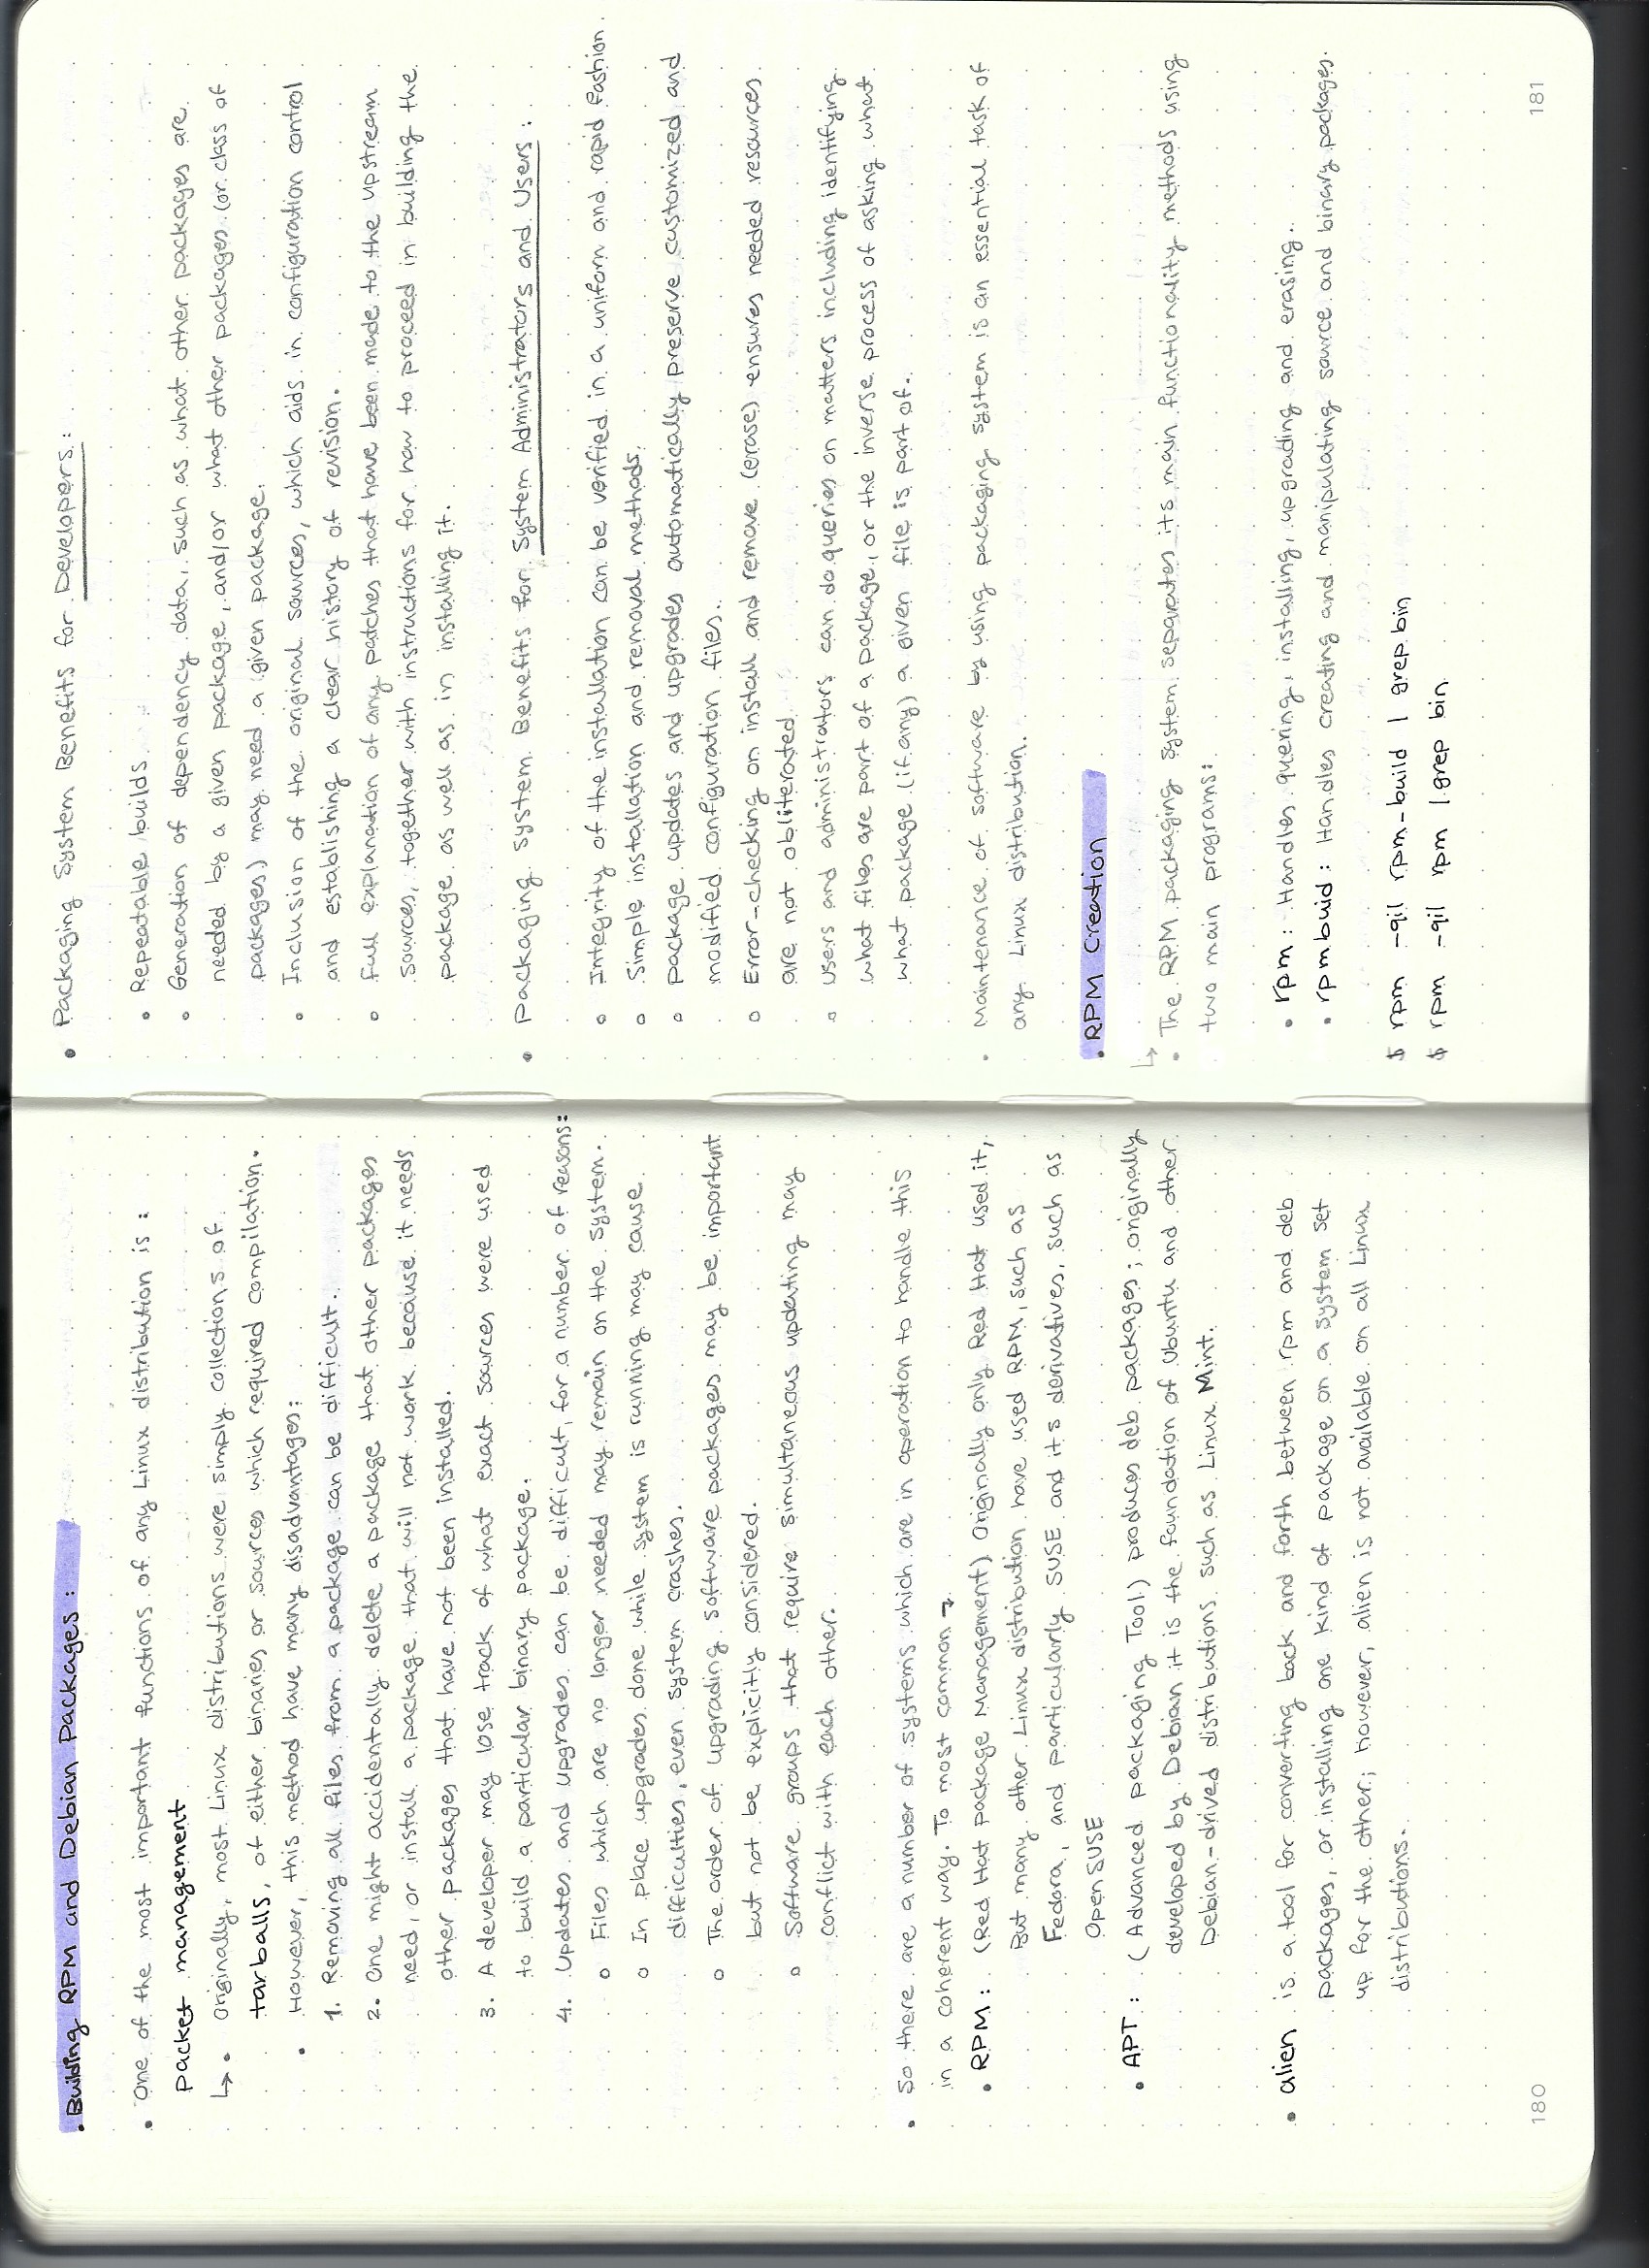 • Building RPM and Debian Packages :
• One of the most important functions of any Linux distribution is :
packet management
↳ • Originally, most Linux distributions were simply collections of
tarballs, of either binaries or sources which required compilation.
• However, this method have many disadvantages:
1. Removing all files from a package can be difficult.
2. One might accidentally delete a package that other packages
need, or install a package that will not work because it needs
other packages that have not been installed.
3. A developer may lose track of what exact sources were used
to build a particular binary package.
4. Updates and upgrades can be difficult, for a number of reasons:
○ Files which are no longer needed may remain on the system.
○ In place upgrades done while system is running may cause
difficulties, even system crashes.
○ The order of upgrading software packages may be important
but not be explicitly considered.
○ Software groups that require simultaneous updating may
conflict with each other.
• So there are a number of systems which are in operation to handle this
in a coherent way. To most common →
• RPM : (Red Hat package Management) Originally only Red Hat used it,
But many other Linux distribution have used RPM, such as
Fedora, and particularly SUSE and its derivatives, such as
OpenSUSE
• APT : (Advanced packaging Tool) produces deb packages; originally
developed by Debian it is the foundation of Ubuntu and other
Debian-drived distributions such as Linux Mint.
• alien is a tool for converting back and forth between rpm and deb
packages, or installing one kind of package on a system set
up for the other; however, alien is not available on all Linux
distributions.
180
• Packaging System Benefits for Developers:
• Repeatable builds
• Generation of dependency data, such as what other packages are
needed by a given package, and/or what other packages (or class of
packages) may need a given package.
• Inclusion of the original sources, which aids in configuration control
and establishing a clear history of revision.
○ Full explanation of any patches that have been made to the upstream
sources, together with instructions for how to proceed in building the
package as well as in installing it.
• Packaging System Benefits for System Administrators and Users :
○ Integrity of the installation can be verified in a uniform and rapid fashion.
○ Simple installation and removal methods.
○ package updates and upgrades automatically preserve customized and
modified configuration files.
○ Error-checking on install and remove (erase) ensures needed resources
are not obliterated
○ users and administrators can do queries on matters including identifying
what files are part of a package, or the inverse process of asking what
what package (if any) a given file is part of.
• Maintenance of software by using packaging system is an essential task of
any Linux distribution.
• RPM Creation
↳
• The RPM packaging system separates its main functionality methods using
two main programs:
• rpm : Handles quering, installing, upgrading and erasing.
• rpmbuid : Handles creating and manipulating source and binary packages.
$ rpm -qil rpm-build | grep bin
$ rpm -qil rpm | grep bin
181